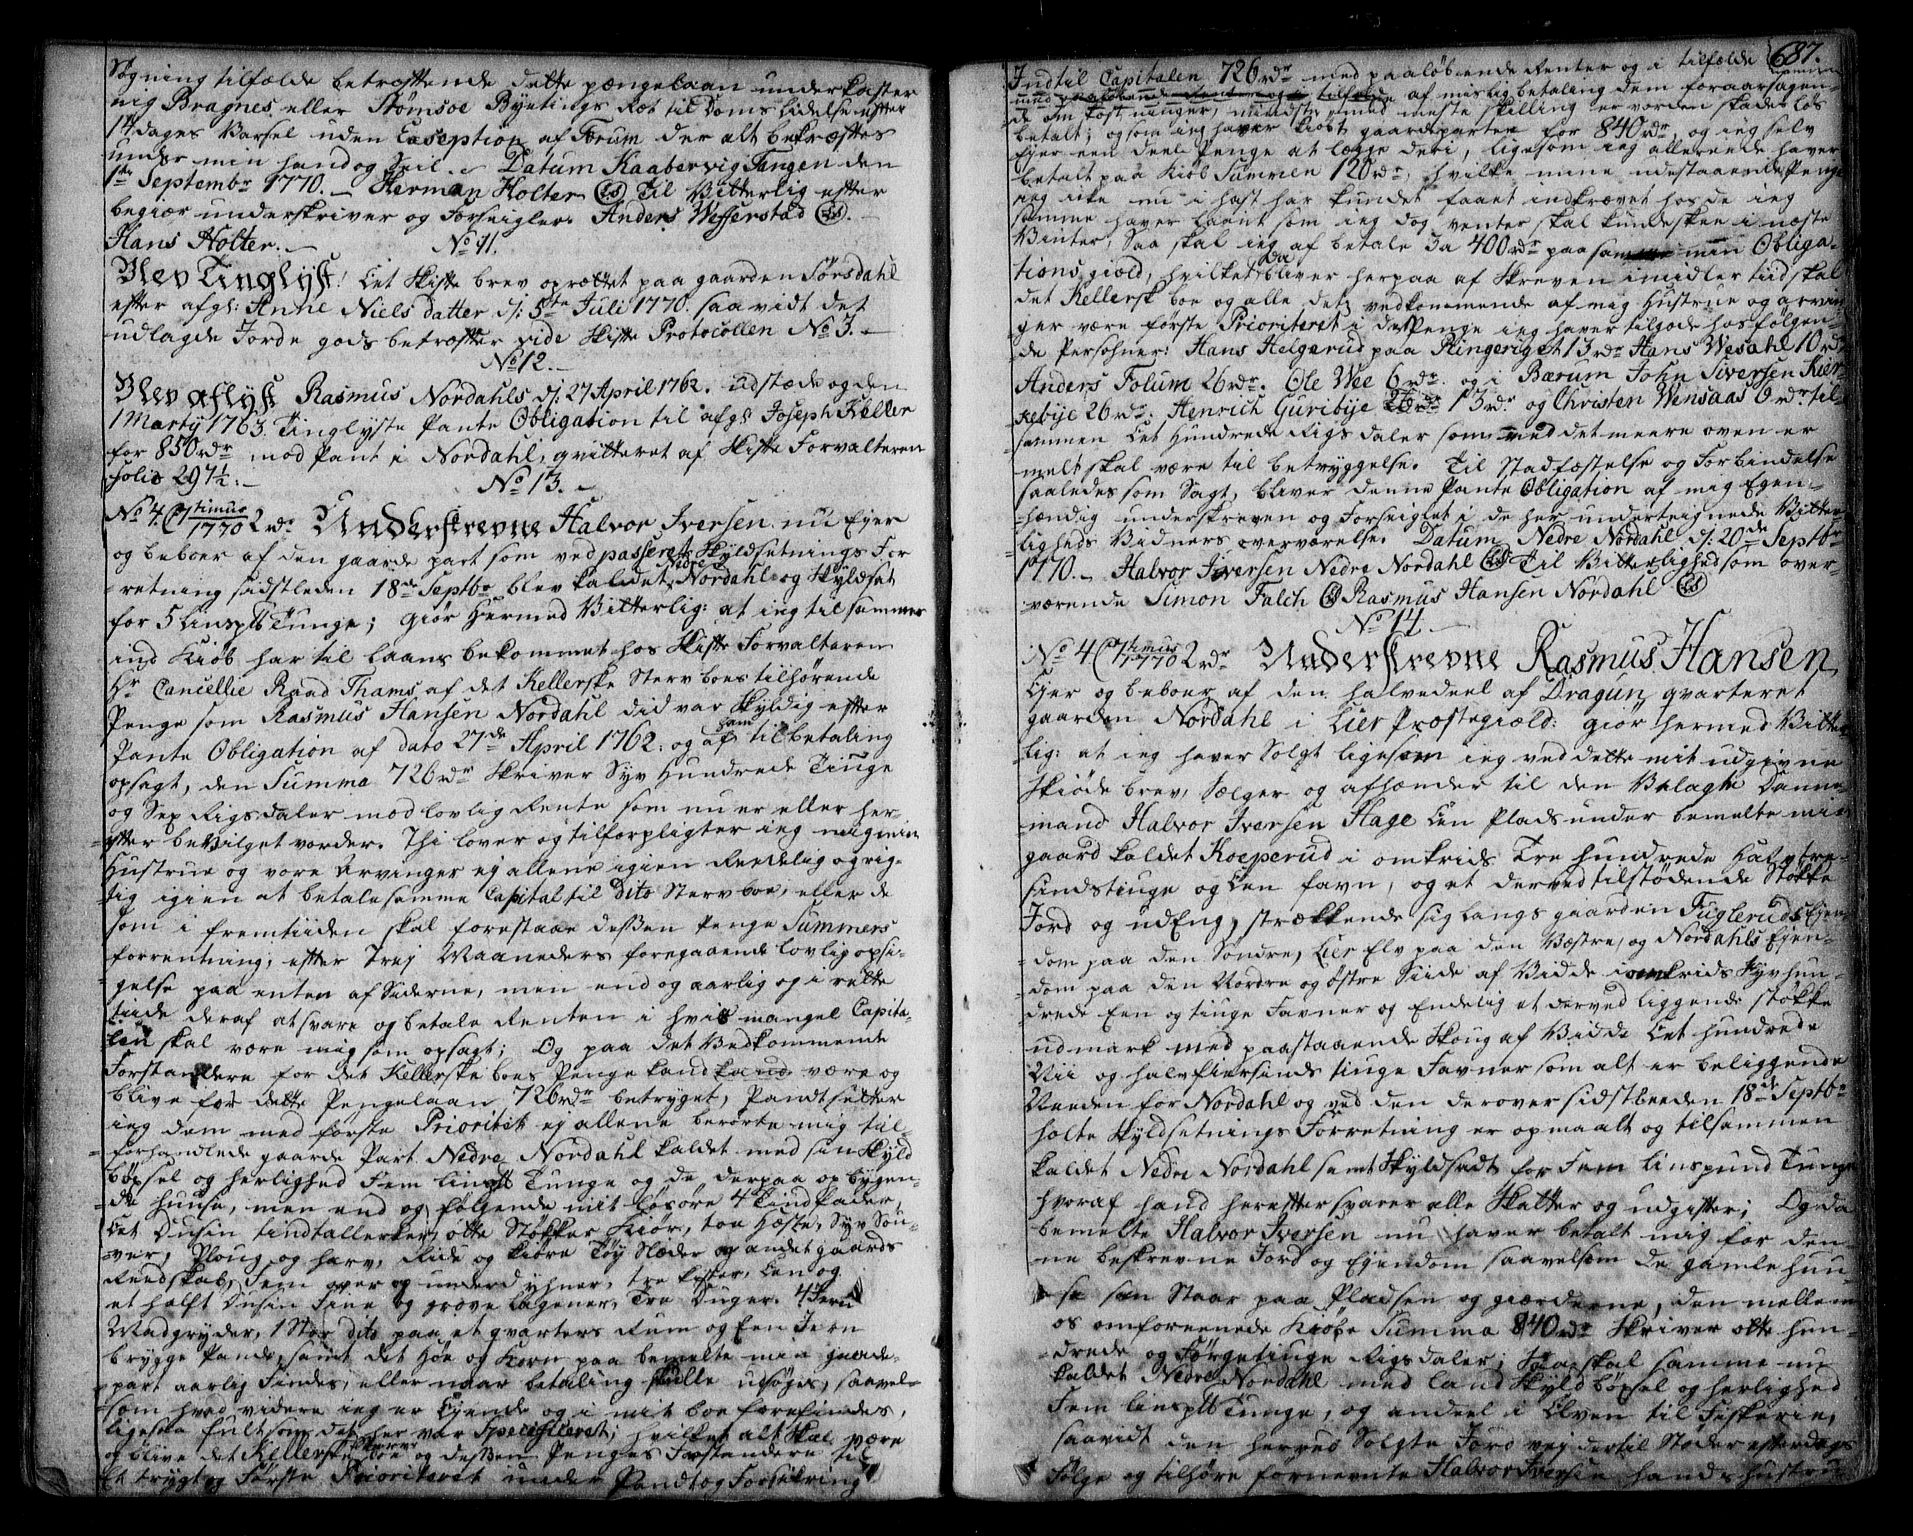 Søgning tilfælde betræffende dette pængelaan underkaster
mig Bragnes eller Strømsøe Byetings Ret til Doms Lidelse efter
14 dages Varsel uden Exseption af Forum der alt bekræftes
under min hand og Seil. Datum Kaabervig Tangen den
1te Septembr 1770. Herman Holter (LS) Til Vitterlig efter
begiær underskriver og Forseigler. Anders Wefferstad (LS).
Hans Holter.
No 11.
Blev Tinglyst! Et Skifte brev oprættet paa gaarden Sørsdahl
efter afg: Anne Niels datter d: 5te Juli 1770 saavidt det
udlagde Jorde gods betræffer vide Skifte Protocollen No 3.
No 12.
Blev aflyst Rasmus Nordahls d: 27 April 1762. udstæde og den
1 Marty 1763 Tinglyste Pante Obligation til afg: Joseph Keller
for 850 rdr mod Pant i Nordahl, qvitteret af Skifte Forvalteren
Folio 297½.
No 13.
No 4 C 7timus 1770 2 rdr Underskrevne Halvor Iversen nu Ejer
og beboer af den gaarde part som ved passeret Skyldsetnings For
retning sidstleden 18de Septbr blev kaldet Nedre Nordahl og Skyldsat
for 5 Linsp℔ Tunge; giør hermed Vitterlig: at ieg til sammes
ind Kiøb har til Laans bekommet hos Skifte Forvalteren
Hr Cancellie Raad Thams af det Kellerske Sterv boes tilhørende
Penge som Rasmus Hansen Nordahl did var Skyldig efter
Pante Obligation af dato 27de April 1762: og af ham til betaling
opsagt, den Summa 726 rdr Skriver Syv Hundrede Tiuge
og Sex Rigsdaler mod lovlig Rente som nu er eller her
efter bevilget vorder. Thi lover og tilforpligter ieg mig min
Hustrue og vore Arvinger ej allene igien Reedelig og rig-
tig igien at betale samme Capital til Dito Sterv boe, eller de
som i fremtiiden skal forestaae dessen Penge Summers
forrentning, efter Trej Maaneders foregaaende lovlig opsi-
gelse paa enten af Siderne, men end og aarlig og i rette
tiide deraf at svare og betale Renten i hvis mangel Capita-
len skal være mig som opsagt; Og paa det Vedkommende
Forstandere for det Kellerske boes Penge kand kand være og
blive for dette Pengelaan 726 rdr betryget, Pandtsetter
ieg dem med første Prioritet ej allene berørte mig til-
forhandlede gaarde Part Nedre Nordahl kaldet med sin Skyld
bøxsel og herlighed Fem Linsp℔ Tunge og de derpaa op bygen-
de huuse, men end og følgende mit Løsøre 4 Tind Fader,
Et Dusin tindtallerker, otte Støkker Kiør, toe Hæste, Syv Sou-
ver, Ploug og harv, Ride og kiøre Tøy Slæder og andet gaards
Reedskab, Fem over og under Dyhner, tre kister, Een og
et halft Dusin Fine og grove Lagener, Tre Duger. 4 Jern
Madgryder, 1 Stor dito paa et qvarters Rum og Een Jern
brygge Pande, samt det Høe og Korn paa bemelte min gaarde-
part aarlig Findes, eller naar betaling skulle udsøges, saavel
som hvad videre ieg er Ejende og i mit boe forefindes,
ligesaa fult som det her var Specificeret, hvilket alt Skal være
og blive det Kellerske Sterv boe og dessen Penges Forstandere til
Et trygt og Første Prioriteret under Pandt og Forsikring
687.
Indtil Capitalen 726 rdr med paaløbende Renter og i tilfælde
af mislig betaling dem foraarsagen-
de om kostninger, mindste med meste skilling er vorden skadesløs
betalt; og som ieg haver kiøbt gaardeparten for 840 rdr, og ieg selv
Ejer een deel Penge at lægge deri, ligesom ieg allereede haver
betalt paa Kiøb Summen 120 rdr, hvilke mine udestaaende Penge
ieg ikke nu i hast har kundet faaet indkrævet hos de ieg
samme haver laant som ieg dog venter skal kunde skee i næste
Vinter, Saa skal ieg af betale Ja 400 rdr paa samme min Obliga-
tions giold, hvilket da bliver herpaa af Skreven imidler tiid skal
det Kellersk boe og alle det vedkommende af mig Hustrue og arvin
ger være første Prioriteret i de Penge ieg haver tilgode hos følgen-
de Persohner: Hans Helgerud paa Ringeriget 13 rdr Hans Wesahl 10 rdr
Anders Folum 26 rdr. Ole Wee 6 rdr. og i Bærum John Siversen Kier
kebye 26 rdr. Henrich Guribye 13 rdr og Christen Wensaas 6 rdr til-
sammen Et Hundrede Rigsdaler som med det meere oven er
melt skal være til betryggelse. Til Stadfæstelse og Forbindelse
saaledes som Sagt, bliver denne Pante Obligation af mig Egen-
hændig underskreven og Forseiglet i de her undertegnede Vitter
ligheds Vidners overværelse. Datum Nedre Nordahl d: 20de Septbr
1770. Halvor Iversen Nedre Nordahl (LS) Til Vitterlighed som over-
værende Simon Falch (LS) Rasmus Hansen Nordahl (LS)
No 14.
No 4 C 7timus 1770 2 rdr Underskrevne Rasmus Hansen
Ejer og beboer af den halvedeel af Dragun qvarteret
gaarden Nordahl i Lier Præstegiæld: giør hermed Vitter
lig: at ieg haver Solgt ligesom ieg ved dette mit udgivne
Skiøde brev, Sælger og afhænder til den Velagte Danne-
mand Halvor Iversen Hage Een Plads under bemelte min
gaard kaldet Koeperud i omkrids Tre hundrede Halvtre-
sindstiuge og Een favn, og et derved tilstødende Støkke
Jord og ud Eng, strækkende sig langs gaarden Fuglerud Ejen
dom paa den Søndre, Lier Elv paa den Væstre, og Nordahls Ejen-
dom paa den Nordre og Østre Siide af Vidde i omkrids Syvhun-
drede Een og tiuge Favner og Endelig et derved liggende støkke
udmark med paastaaende Skoug af Vidde Eet hundrede
Nii og halvfiersinds tiuge Favner som alt er beliggende
Needen for Nordahl og ved den derover sidstleeden 18de Septbr
holte Skyldsetnings Forretning er opmaalt og tilsammen
kaldet Nedre Nordahl samt Skyldsadt for Fem Linspund Tunge
hvoraf hand herefter svarer alle Skatter og udgifter; Og da
bemelte Halvor Iversen nu haver betalt mig for den-
ne beskrevne Jord og Ejendom saavelsom de gamle huu-
se som Staar paa Pladsen og giærderne, den mellem
os omforeenede Kiøbe Summa 840 rdr Skriver otte hun-
drede og Førgetiuge Rigsdaler; Saa skal samme nu
kaldet Nedre Nordahl med Land Skyld bøxsel og herlighed
Fem Linsp℔ Tunge, og andeel i Elven til Fiskerie,
saavidt den herved Solgte Jord vej dertil Støder efterdags
Følge og tilhøre fornevnte Halvor Iversen hands hustru